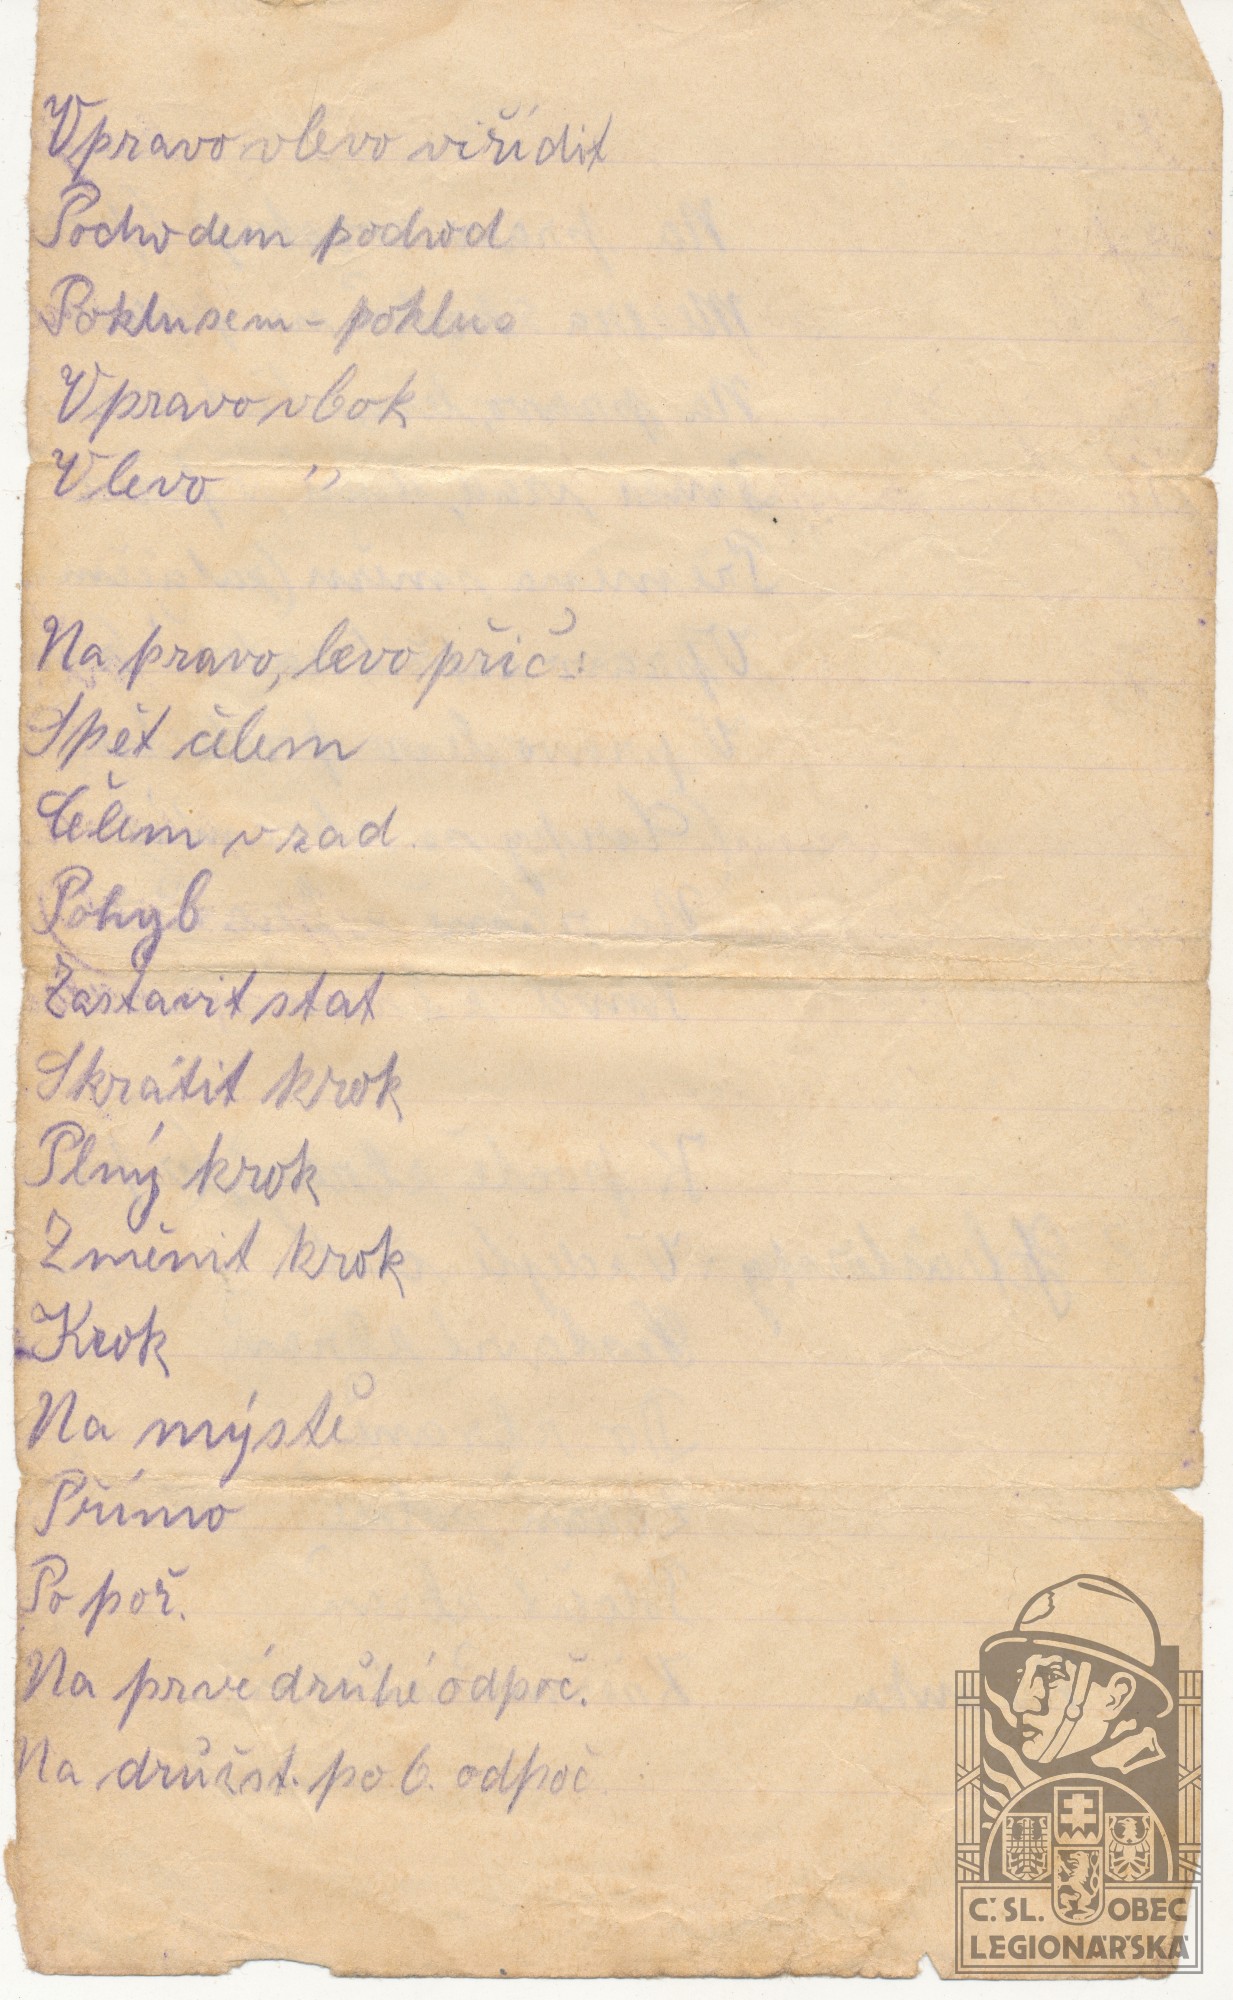 Vpravo vlevo viřídit
Pochodem pochod
Poklusem - poklus
Vpravo vbok
Vlevo "
Na pravo, levo přič:
Spět čelem
Čelem vzad.
Pohyb
Zastavit stat
Skrátit krok
Plný krok
Změnit krok
Krok
Na mýstě
Přímo
Po poř.
Na prvé druhé odpoč.
Na družst. po 6. odpoč
Č.SL. OBEC
LEGIONÁŘSKÁ